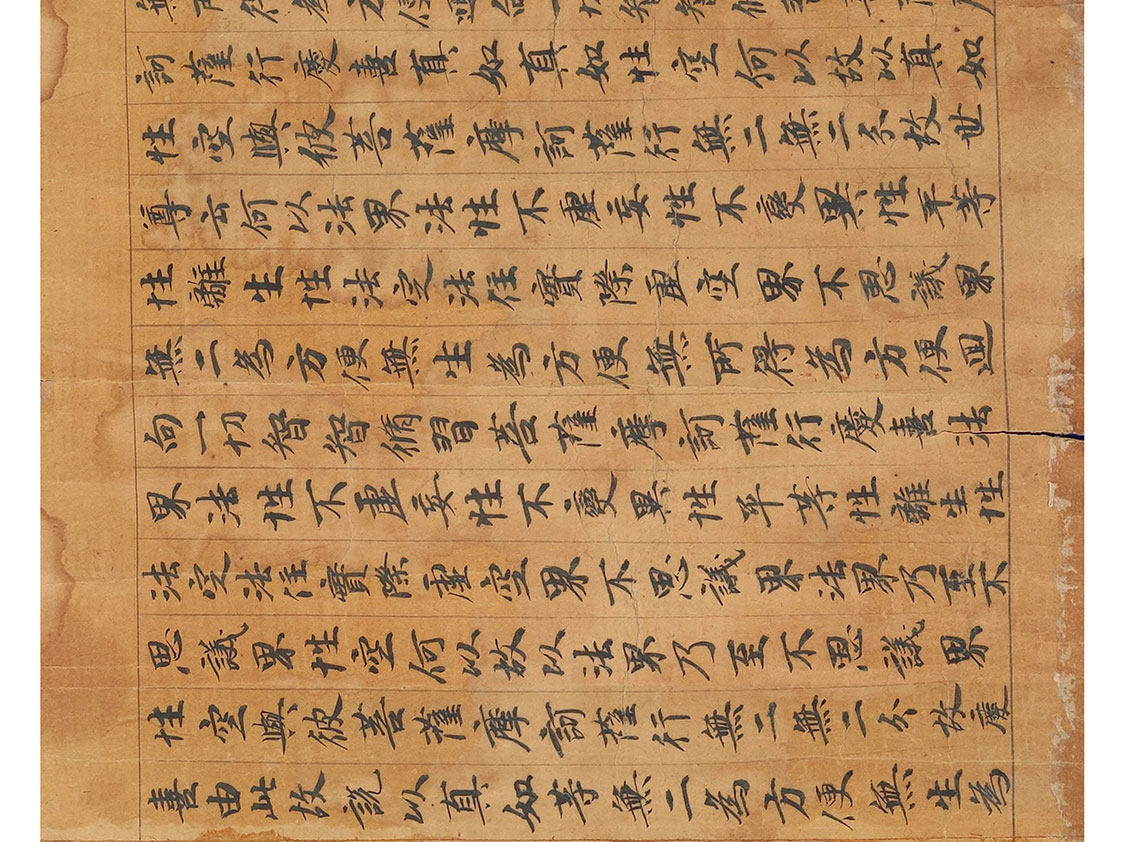 訶薩行慶喜真如真如性空何以故以真如
性空與彼菩薩摩訶薩行無二無二分故世
尊云何以法界法性不虛妄性不變異性平等
性離生性法定法住實際虛空界不思議界
無二為方便無生為方便無所得為方便迴
向一切智智脩習菩薩摩訶薩行慶喜法
界法性不虛妄性不變異性平等性離生性
法定法住實際虛空界不思議界法界乃至不
思議界性空何以故以法界乃至不思議界
性空與彼菩薩摩訶薩行無二無二分故慶
喜由此故說以真如等無二為方便無生為